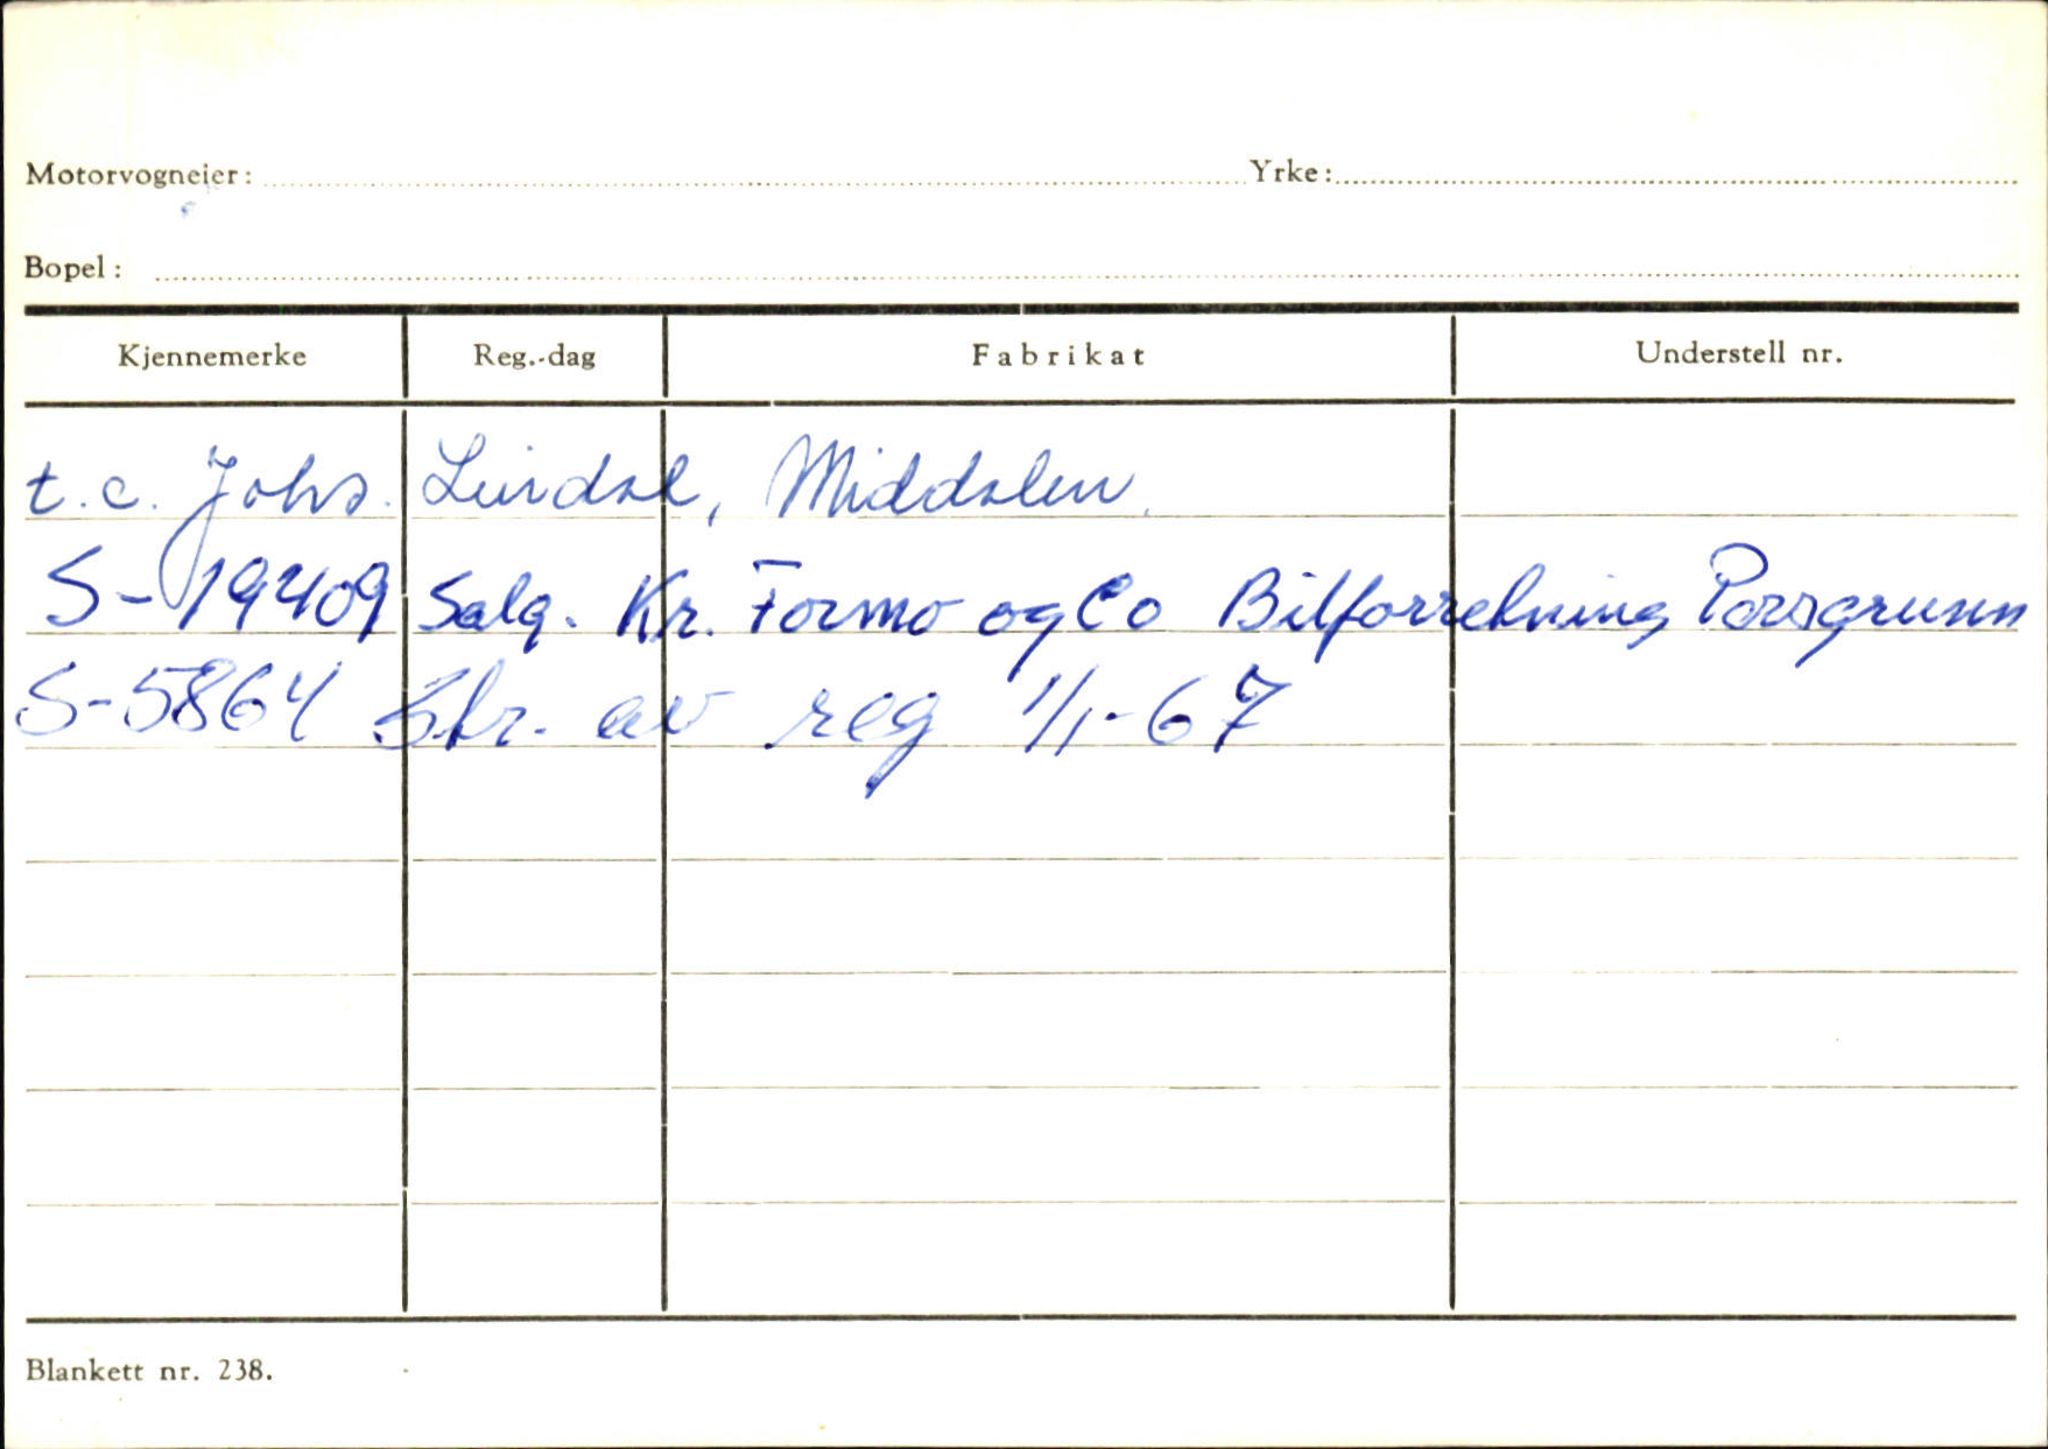 Motorvogneier: Yrke:
Bopel:
Kjennemerke Reg.-dag Fabrikat Understell nr.
t.c. Johs. Lindal, Middalen.
S-19409 Salg. Kr. Formo og Co Bilforretning Porsgrunn
S-5864 Str. av reg 1/1-67
Blankett nr. 238.